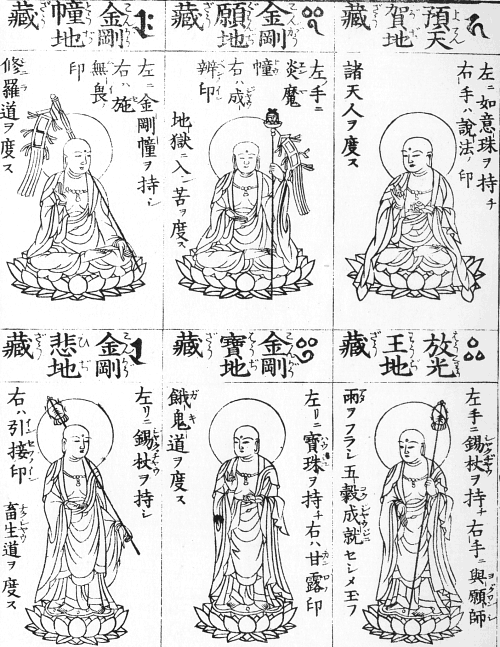 預天
賀地
藏
左ニ如意珠ヲ持チ
右手ハ說法ノ印
諸天人ヲ度ス
金剛
願地
藏
左ノ手ニ
炎魔
幢
右ハ成
辨印
地獄ニ入シ苦ヲ度ス
金剛
幢地
藏
左ニ金剛幢ヲ持シ
右ハ施
無畏
印
修羅道ヲ度ス
放光
王地
藏
左手ニ錫杖ヲ持チ右手ニ與願師
雨ヲフラシ五穀成就セシメ玉フ
金剛
寳地
藏
左リニ寳珠ヲ持チ右ハ甘露印
餓鬼道ヲ度ス
金剛
悲地
藏
左リニ錫杖ヲ持シ
右ハ引接印
畜生道ヲ度ス